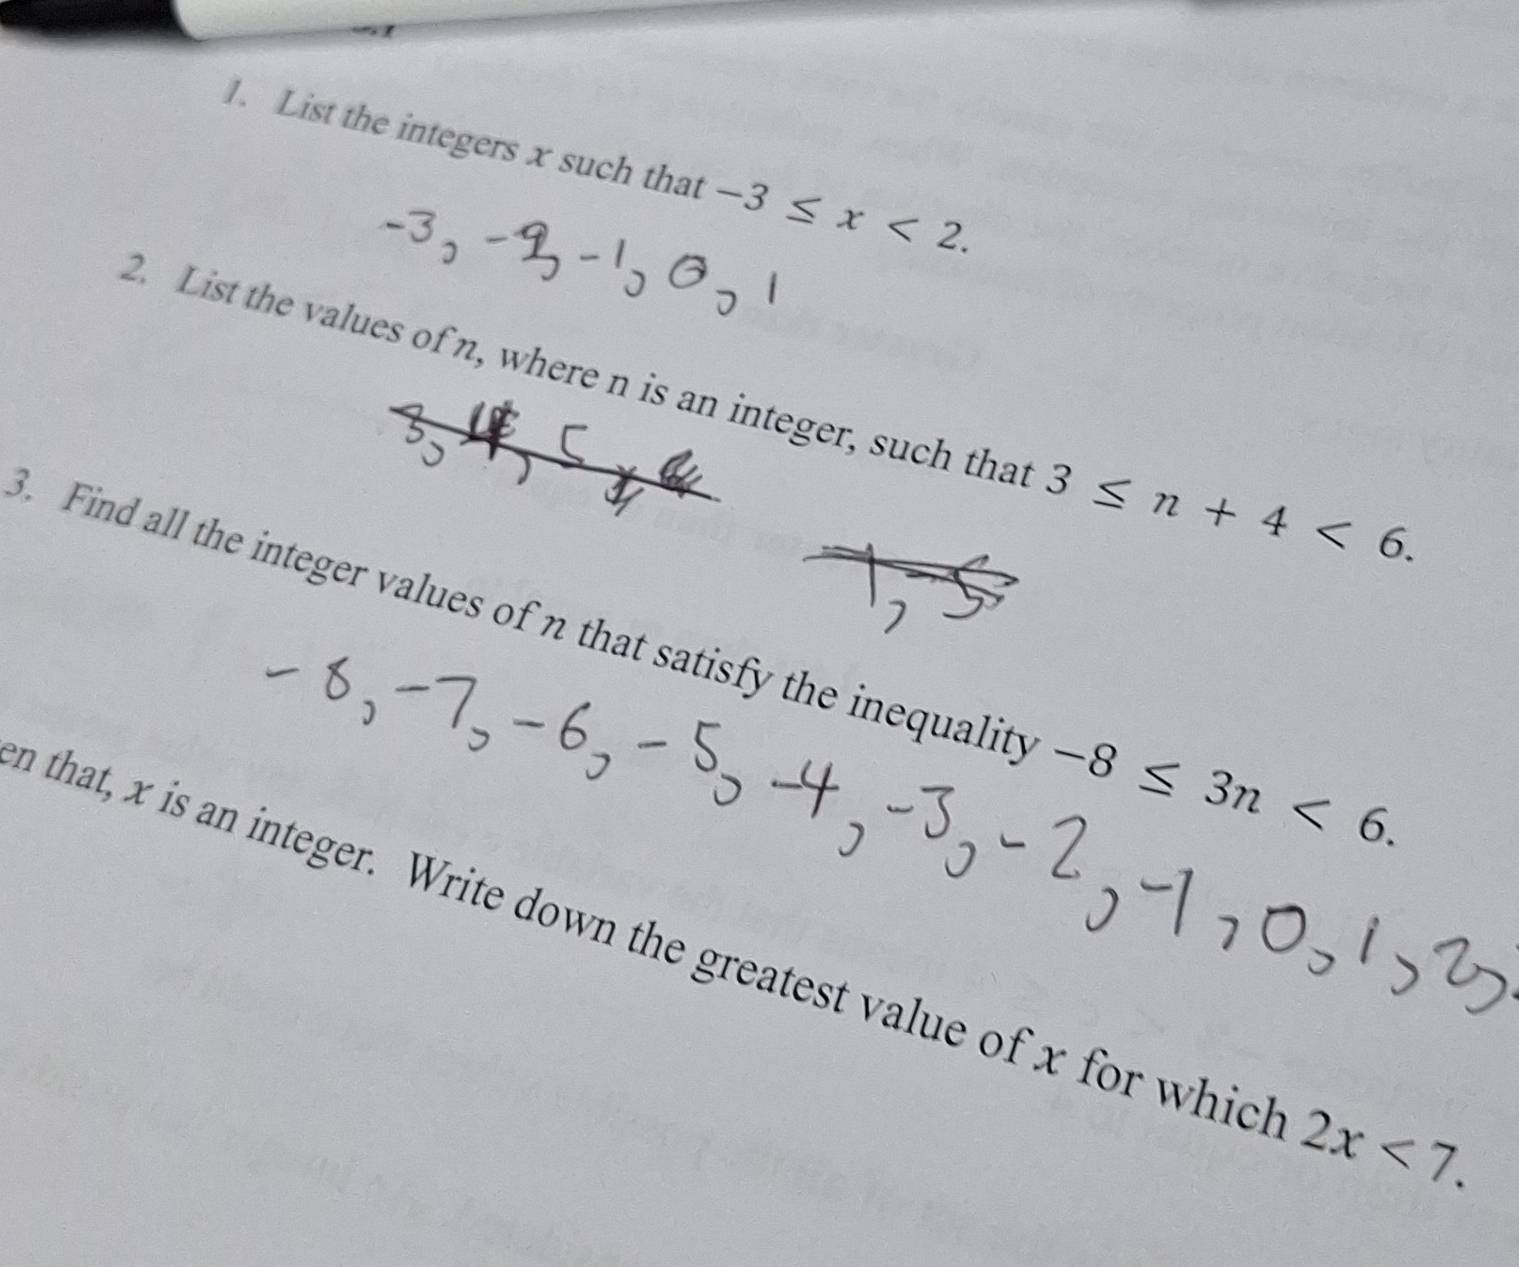 1. List the integers x such that −3 ≤ x < 2.
-3, -2, -1, 0, 1
2. List the values of n, where n is an integer, such that 3 ≤ n + 4 < 6.
3, 4, 5
1, -5
3. Find all the integer values of n that satisfy the inequality −8 ≤ 3n < 6.
-8, -7, -6, -5, -4, -3, -2, -1, 0, 1, 2,
en that, x is an integer. Write down the greatest value of x for which 2x < 7.